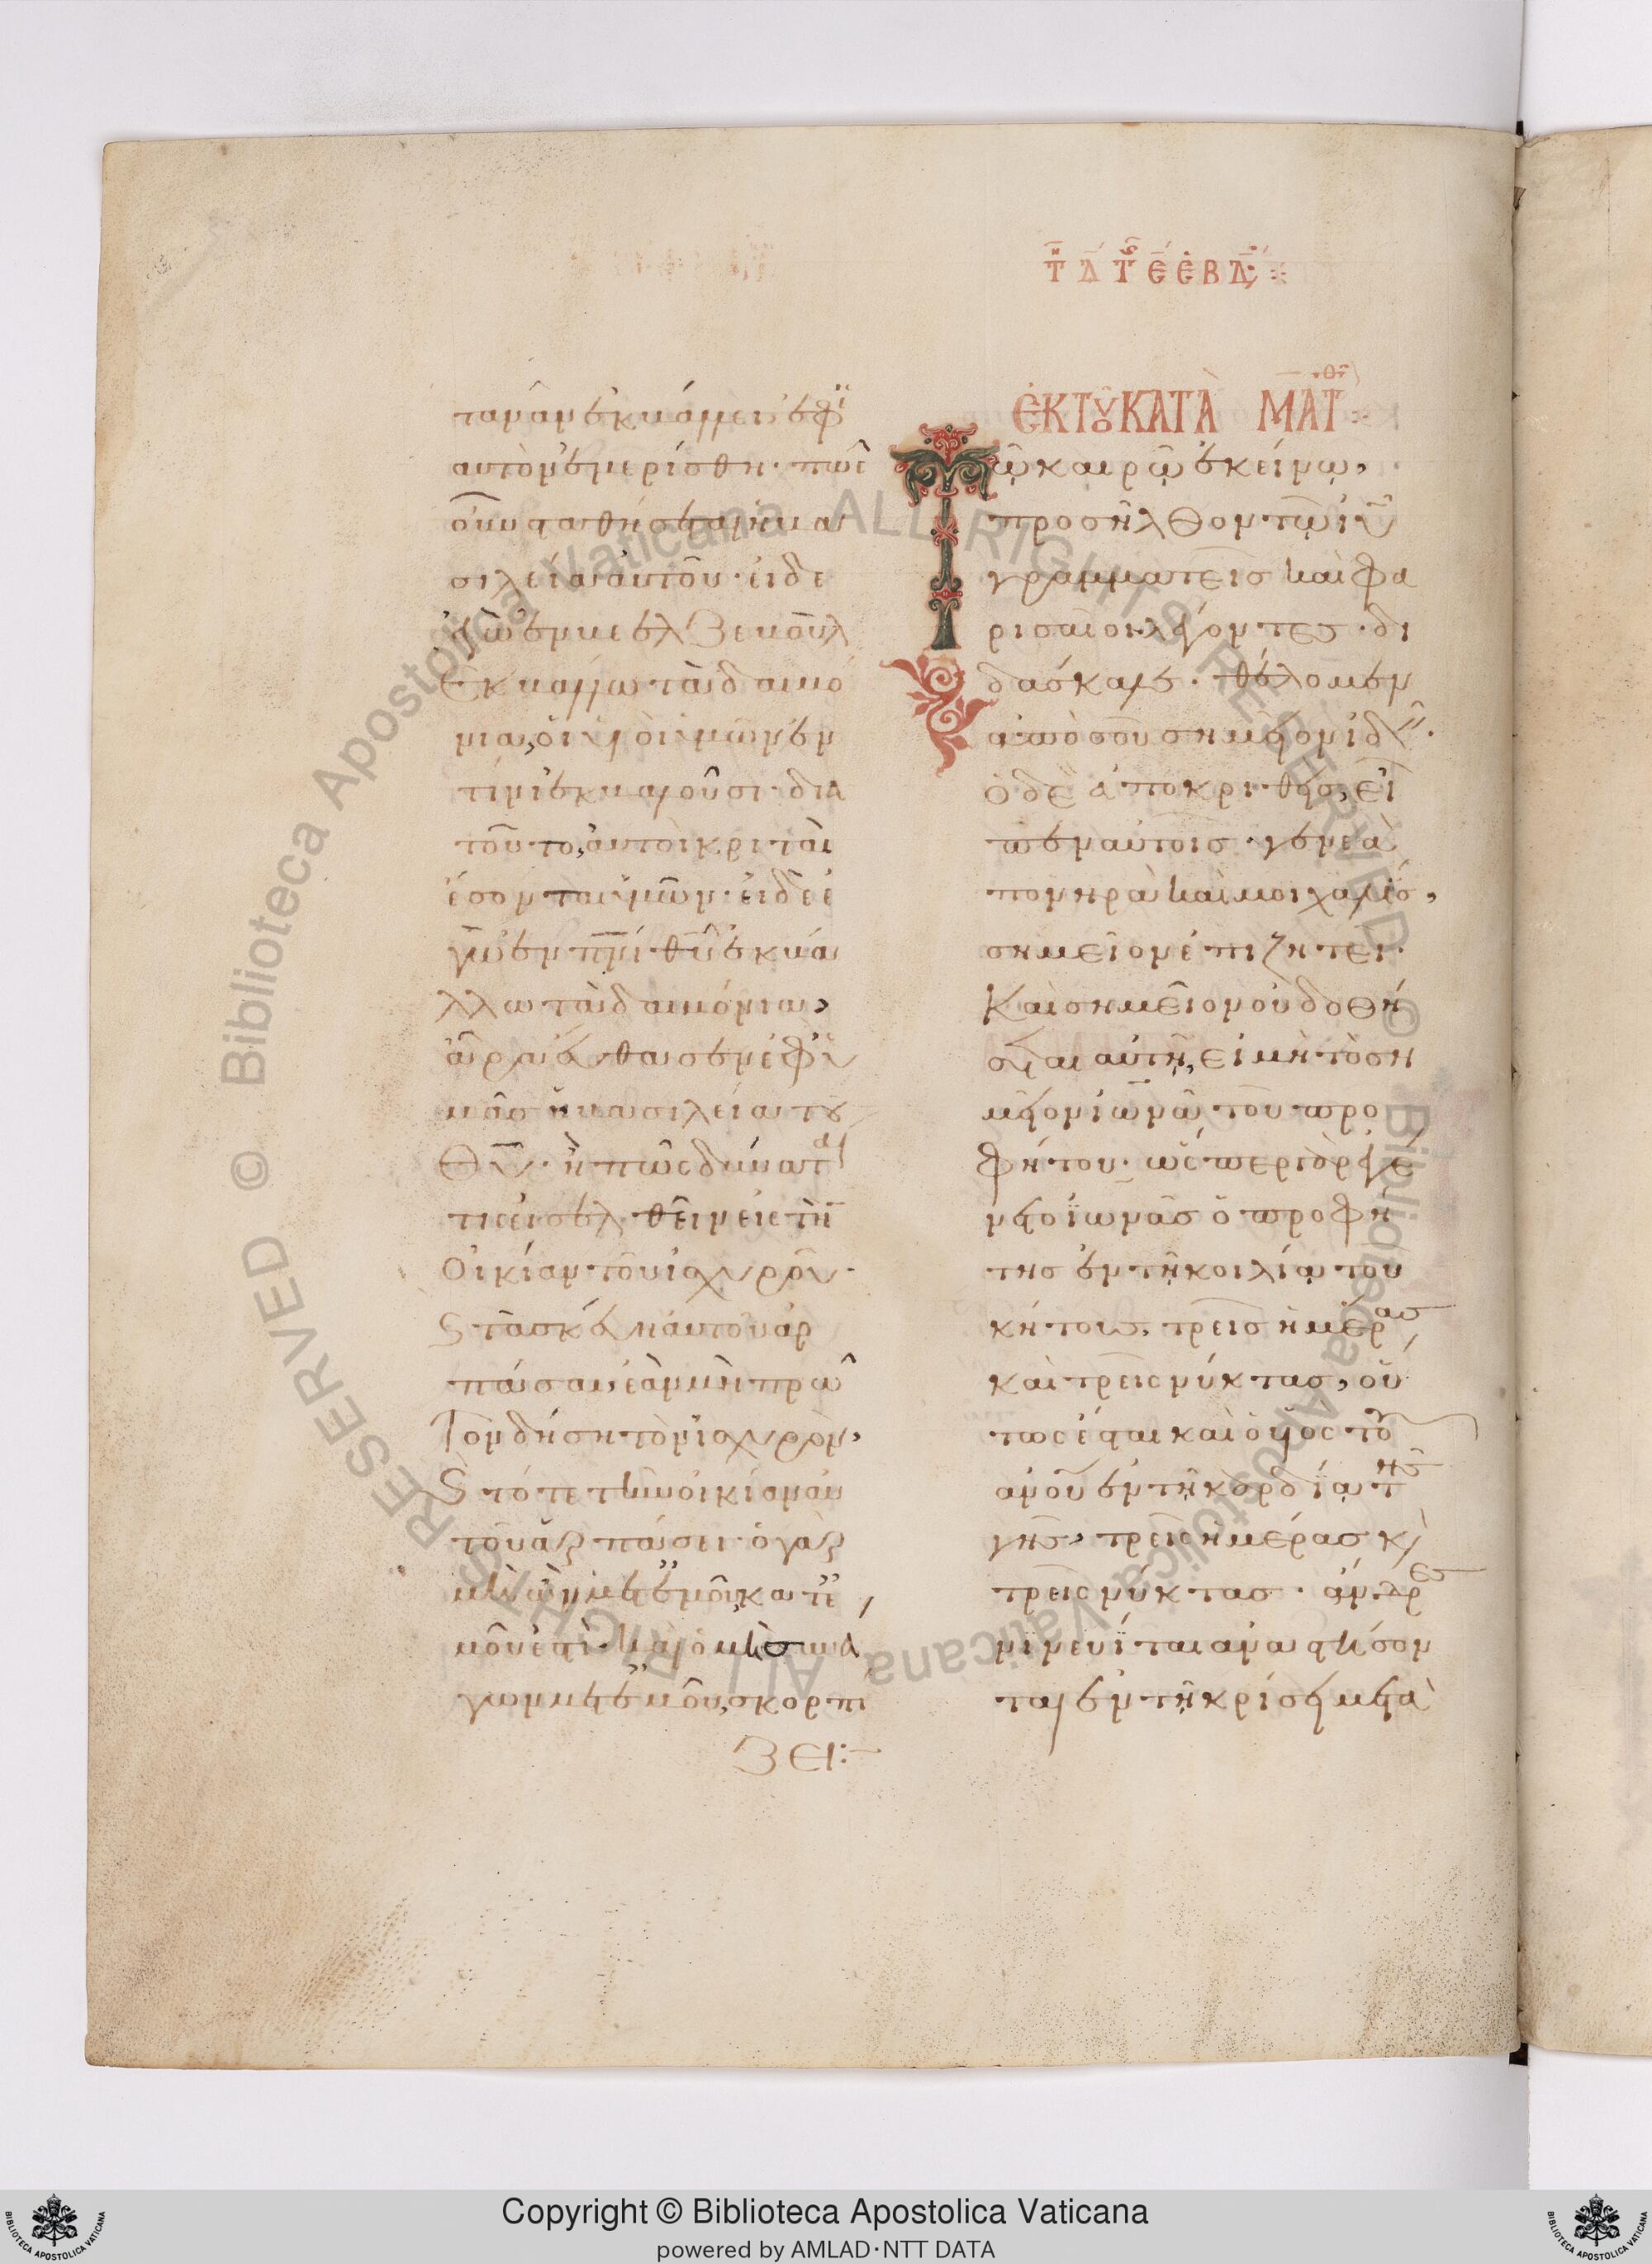 τῆ δ τῆς ε ἑβδ
τανᾶν ἐκβάλλει ἐφ
αυτὸν ἐμερίσθη· πῶς
οὖν σταθήσεται ἡ βα
σιλεία αυτοῦ· ει δε
ἐγὼ ἐν βεελζεβοὺλ
ἐκβάλλω τὰ δαιμό
νια, οἱ υἱοὶ ὑμῶν ἐν
τίνι ἐκβαλοῦσι· δια
τοῦτο, αυτοὶ κριταὶ
ἔσονται ὑμῶν· εἰ δὲ ἐ
γὼ ἐν πνι θυ ἐκβά
λλω τὰ δαιμόνια,
ἄρα ἔφθασεν ἐφ' ὑ
μᾶς ἡ βασιλεία του
θυ· ἢ πῶς δύναται
τις εἰσελθεῖν εἰς τὴν
οἰκίαν τοῦ ἰσχυροῦ·
ϛ τὰ σκεύη αυτοῦ ἁρ
πάσαι, ἐὰν μὴ πρῶ
τον δήση τὸν ἰσχυρὸν,
ϛ τότε τὴν οἰκίαν αυ
τοῦ ἁρπάσει· ὁ γὰρ
μὴ ὢν μετ' ἐμοῦ, κατ' ἐ
μοῦ ἐστὶ· καὶ ὁ μὴ συνά
γων μετ' ἐμοῦ, σκορπί
ζει:
ἐκ τοῦ κατὰ ματθ
Τῶ καιρῶ ἐκείνω,
προσῆλθον τῶ ιυ
γραμματεῖς καὶ φα
ρισαῖοι λέγοντες· δι
δάσκαλε· θέλομεν
ἀπὸ σοῦ σημεῖον ἰδεῖν·
ὁ δὲ ἀποκριθεὶς, εἶ
πεν αὐτοῖς· γενεὰ
πονηρὰ καὶ μοιχαλὶς,
σημεῖον ἐπιζητεῖ·
Καὶ σημεῖον οὐ δοθή
σεται αὐτῆ, εἰ μὴ τὸ ση
μεῖον ἰωνᾶ τοῦ προ
φήτου· ὥσπερ γὰρ ἐγέ
νετο ἰωνᾶς ὁ προφή
της ἐν τῆ κοιλία τοῦ
κήτους, τρεῖς ἡμέρας
καὶ τρεῖς νύκτας, οὕ
τως ἔσται καὶ ὁ υἱὸς του
ανου ἐν τῆ καρδία της
γῆς, τρεῖς ἡμέρας κ
τρεῖς νύκτας· ἄνδρες
νινευῖται ἀναστήσον
ται ἐν τῆ κρίσει μετὰ
Copyright © Biblioteca Apostolica Vaticana
powered by AMLAD·NTT DATA